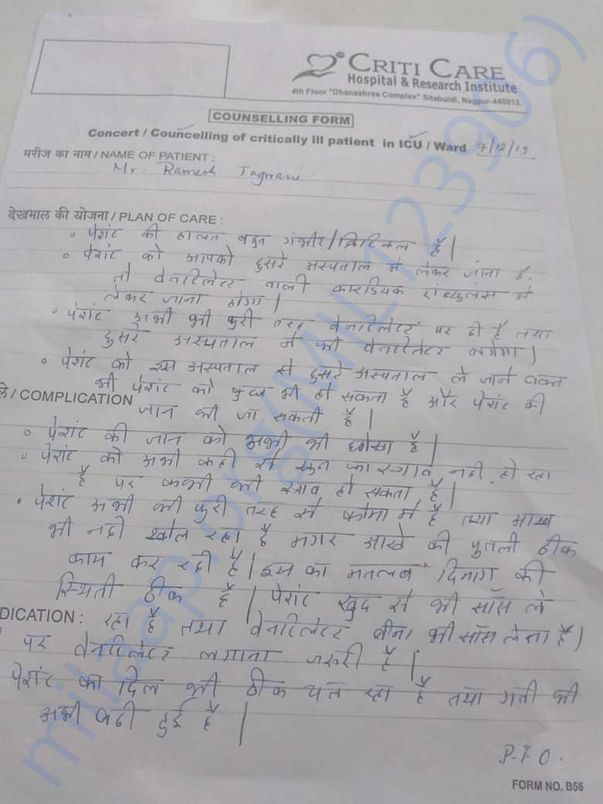 CRITI CARE
Hospital & Research Institute
4th Floor "Dhanashree Complex" Sitabuldi, Nagpur-440012.
COUNSELLING FORM
Concert / Councelling of critically ill patient in ICU / Ward 7/12/19
मरीज का नाम / NAME OF PATIENT :
Mr. Ramesh Jagwani
देखभाल की योजना / PLAN OF CARE :
• पेशंट की हालत बहुत गंभीर / क्रिटिकल है |
• पेशंट को आपको दुसरे अस्पताल मे लेकर जाना है.
तो वेनटिलेटर वाली कारडियक एंब्युलंस मे
लेकर जाना होगा |
• पेशंट अभी भी पुरी तरह वेनटिलेटर पर ही है तथा
दुसरे अस्पताल मे भी वेनटिलेटर लगेगा |
• पेशंट को इस अस्पताल से दुसरे अस्पताल ले जाते वक्त
भी पेशंट को कुछ भी हो सकता है और पेशंट की
/ COMPLICATION जान भी जा सकती है |
• पेशंट की जान को अभी भी धोखा है |
• पेशंट को अभी कही से खुन का स्त्राव नही हो रहा
है पर कभी भी स्त्राव हो सकता है |
• पेशंट अभी भी पुरी तरह से कोमा मे है तथा आंख
भी नही खोल रहा है मगर आखे की पुतली ठीक
काम कर रही है | इस का मतलब दिमाग की
स्थिती ठीक है | पेशंट खुद से भी साँस ले
DICATION : रहा है तथा वेनटिलेटर बीना भी साँस लेता है |
पर वेनटिलेटर लगाना जरुरी है |
पेशंट का दिल भी ठीक चल रहा है तथा गती भी
अभी बढी हुई है |
P.T.O.
FORM NO. B56
milaap.org(MIL123906)